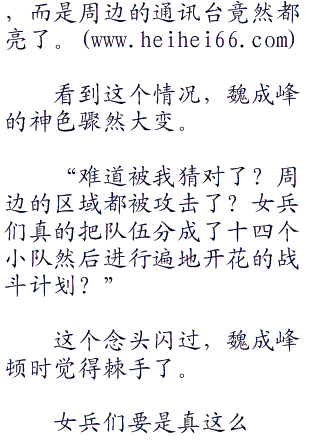 ，而是周边的通讯台竟然都
亮了。(www.heihei66.com)
看到这个情况，魏成峰
的神色骤然大变。
“难道被我猜对了？周
边的区域都被攻击了？女兵
们真的把队伍分成了十四个
小队然后进行遍地开花的战
斗计划？”
这个念头闪过，魏成峰
顿时觉得棘手了。
女兵们要是真这么